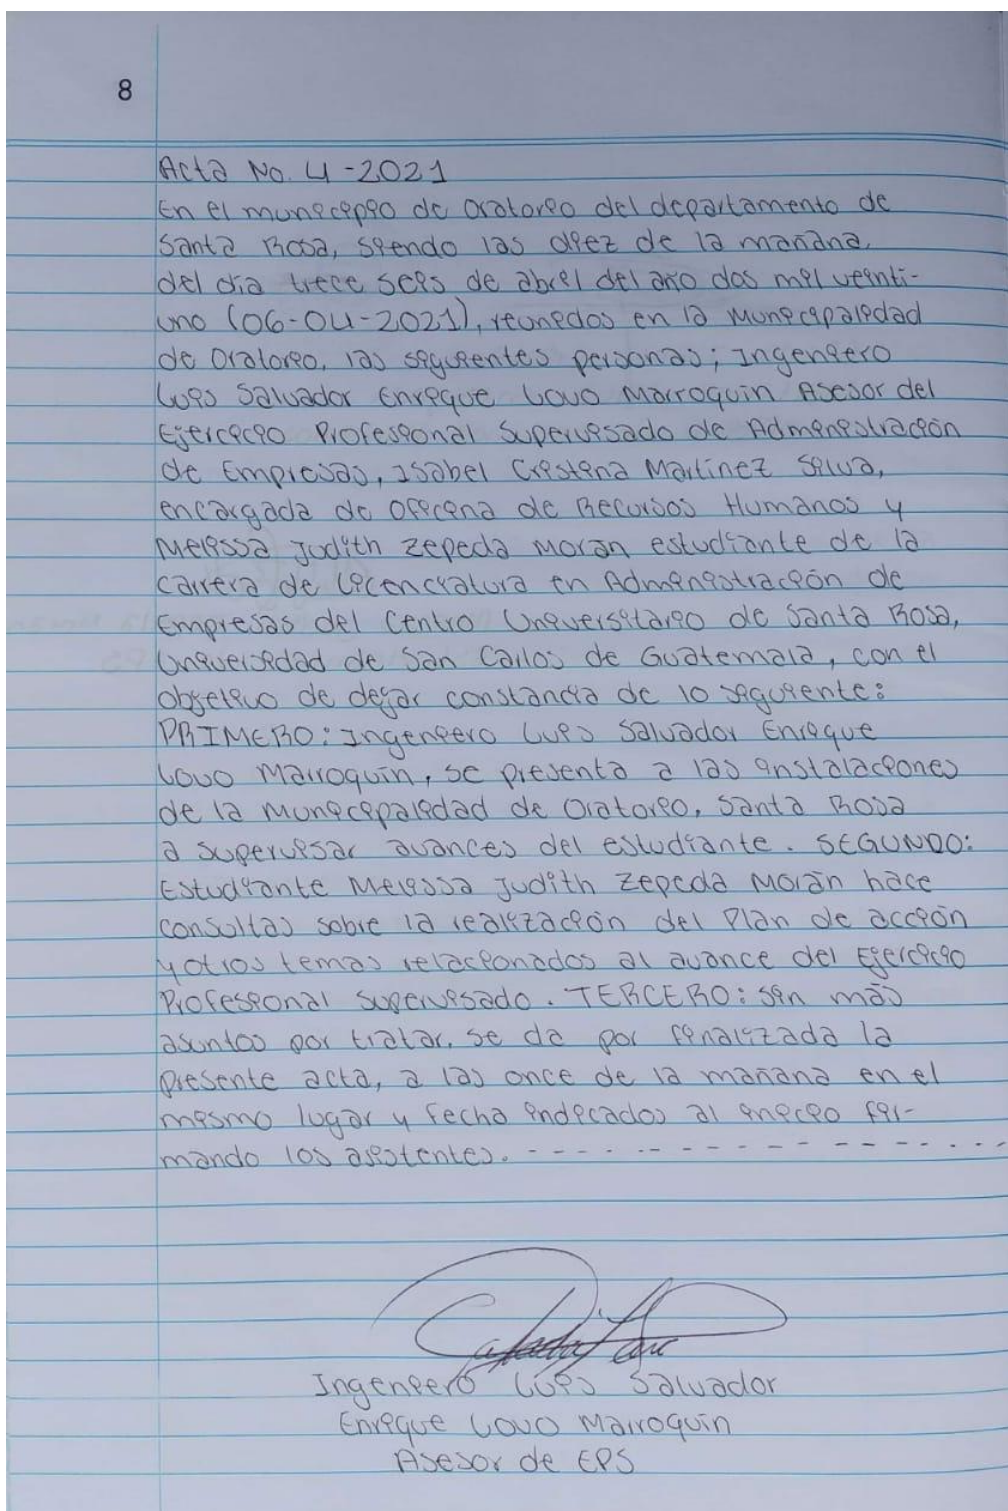 8
Acta No. 4-2021
En el municipio de Oratorio del departamento de
Santa Rosa, siendo las diez de la mañana,
del día trece seis de abril del año dos mil veinti-
uno (06-04-2021), reunidos en la Municipalidad
de Oratorio, las siguientes personas; Ingeniero
Luis Salvador Enrique Lovo Marroquín Asesor del
Ejercicio Profesional Supervisado de Administración
de Empresas, Isabel Cristina Martínez Silva,
encargada de Oficina de Recursos Humanos y
Melissa Judith Zepeda Morán estudiante de la
carrera de Licenciatura en Administración de
Empresas del Centro Universitario de Santa Rosa,
Universidad de San Carlos de Guatemala, con el
objetivo de dejar constancia de lo siguiente:
PRIMERO: Ingeniero Luis Salvador Enrique
Lovo Marroquín, se presenta a las instalaciones
de la Municipalidad de Oratorio, Santa Rosa
a supervisar avances del estudiante. SEGUNDO:
Estudiante Melissa Judith Zepeda Morán hace
consultas sobre la realización del Plan de acción
y otros temas relacionados al avance del Ejercicio
Profesional Supervisado. TERCERO: Sin más
asuntos por tratar, se da por finalizada la
presente acta, a las once de la mañana en el
mismo lugar y fecha indicados al inicio fir-
mando los asistentes. - - - - - - - - - - - - - - -
Ingeniero Luis Salvador
Enrique Lovo Marroquín
Asesor de EPS